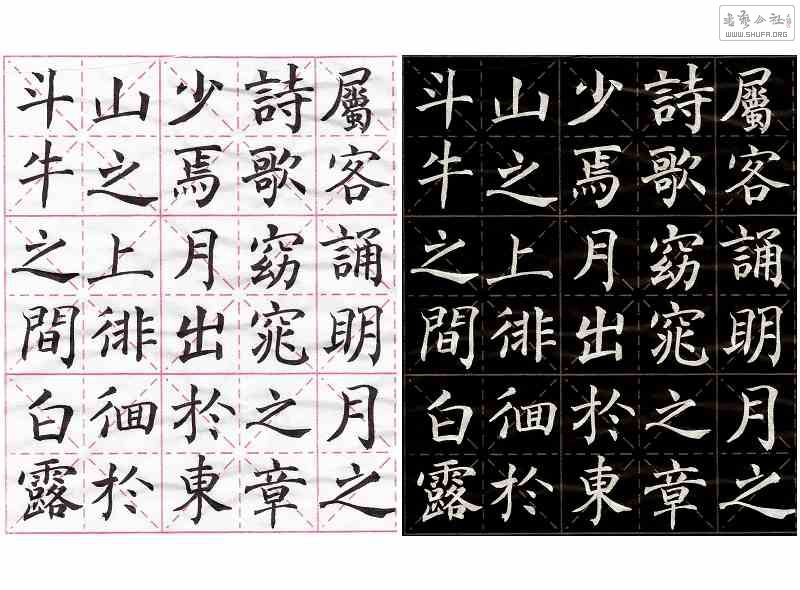 書藝公社
WWW.SHUFA.ORG
屬客誦明月之
詩歌窈窕之章
少焉月出於東
山之上徘徊於
斗牛之間白露
屬客誦明月之
詩歌窈窕之章
少焉月出於東
山之上徘徊於
斗牛之間白露